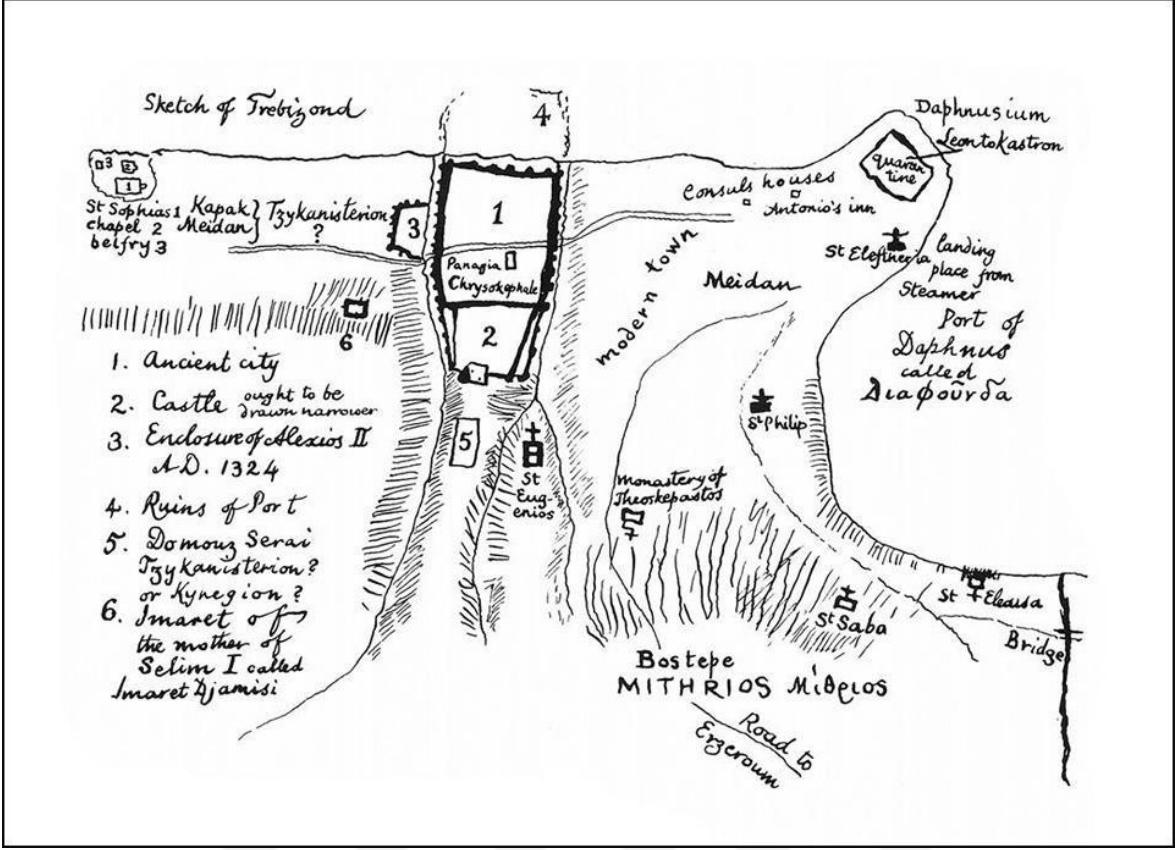 Sketch of Trebizond
4
Daphnusium
Leontokastron
quaran
tine
3
2
1
St Sophias 1
chapel 2
belfry 3
Kapak
Meidan
Tzykanisterion
?
3
1
Panagia
Chrysokephale
2
Consuls houses
Antonio's inn
St Eleftheria
landing
place from
Steamer
Port of
Daphnus
called
Διαφοῦνδα
modern town
Meidan
6
1. Ancient city
2. Castle ought to be
drawn narrower
3. Enclosure of Alexios II
A.D. 1324
4. Ruins of Port
5. Domouz Serai
Tzykanisterion?
or Kynegion?
6. Imaret of
the mother of
Selim I called
Imaret Djamisi
5
St
Eug-
enios
St Philip
monastery of
Theoskepastos
St Saba
St Eleousa
Bridge
Bostepe
MITHRIOS Μίθριος
Road to
Erzeroum